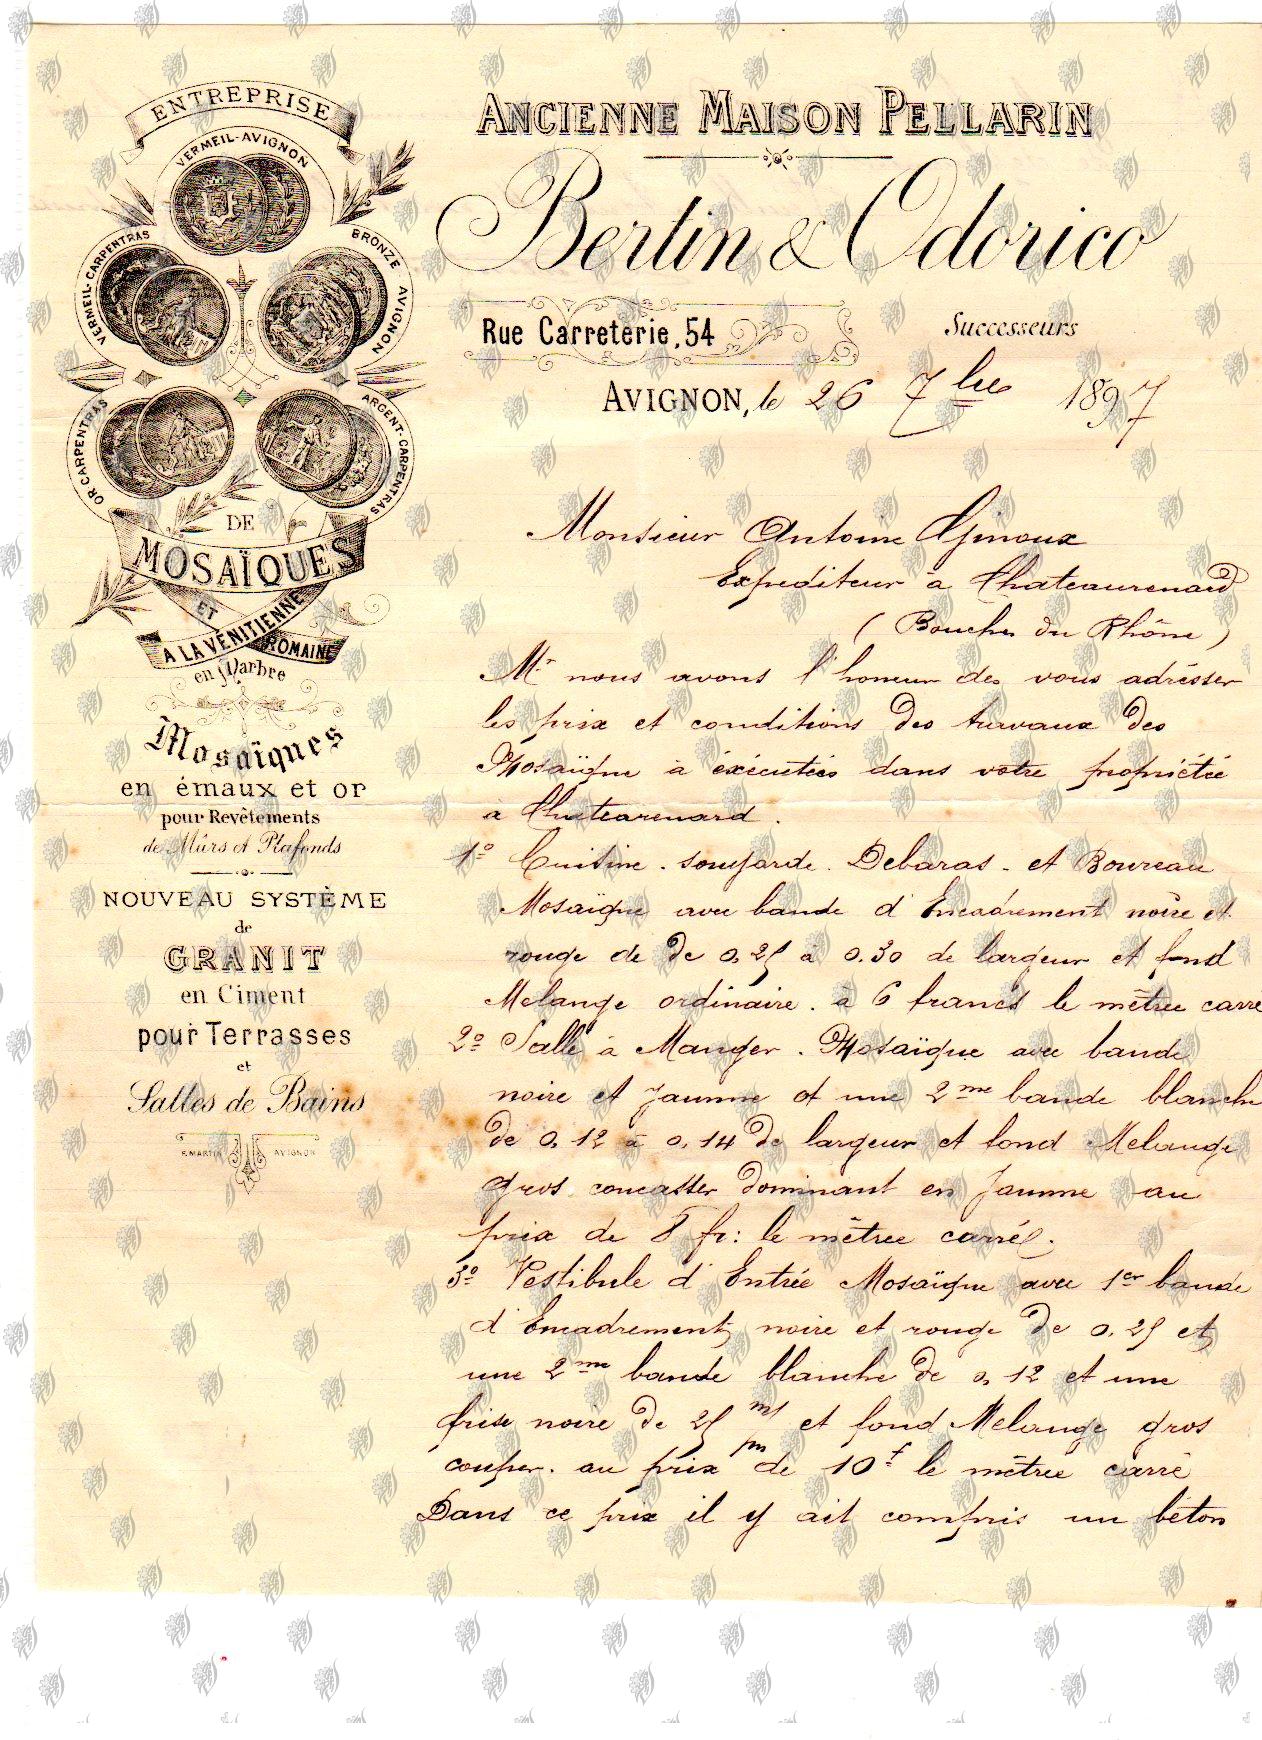 ENTREPRISE
VERMEIL-AVIGNON
VERMEIL-CARPENTRAS
BRONZE AVIGNON
OR CARPENTRAS
ARGENT-CARPENTRAS
DE
MOSAÏQUES
ET
A LA VÉNITIENNE
ROMAINE
en Marbre
Mosaïques
en émaux et or
pour Revêtements
de Mûrs et Plafonds
NOUVEAU SYSTÈME
de
GRANIT
en Ciment
pour Terrasses
et
Salles de Bains
F. MARTIN AVIGNON
ANCIENNE MAISON PELLARIN
Bertin & Odorico
Rue Carreterie, 54
Successeurs
AVIGNON, le 26 7bre 1897
Monsieur Antoine Ginoux
Expediteur à Chateaurenard
(Bouches du Rhône)
Mr nous avons l'honeur des vous adrésser
les prix et conditions des travaux des
Mosaïque à éxécutées dans votre propriétée
a Chatearenard.
1º Cuisine. soufarde. Debaras. et Boureau
Mosaïque avec bande d'Encadrement noire et
rouge de de 0,25 à 0.30 de largeur et fond
Melange ordinaire. à 6 francs le mêtree carré
2º Salle à Manger. Mosaïque avec bande
noire et Jaunne et une 2me bande blanche
de 0,12 à 0,14 de largeur et fond Melange
gros concasser dominant en Jaunne au
prix de 8 fr: le mêtree carré.
3º Vestibule d'Entrée Mosaïque avec 1er bande
d'Encadrement noire et rouge de 0.25 et
une 2me bande blanche de 0,12 et une
frise noire de 25 et fond Melange gros
couper. au prix de 10f le mêtree carré
Dans ce prix il y ait compris un béton